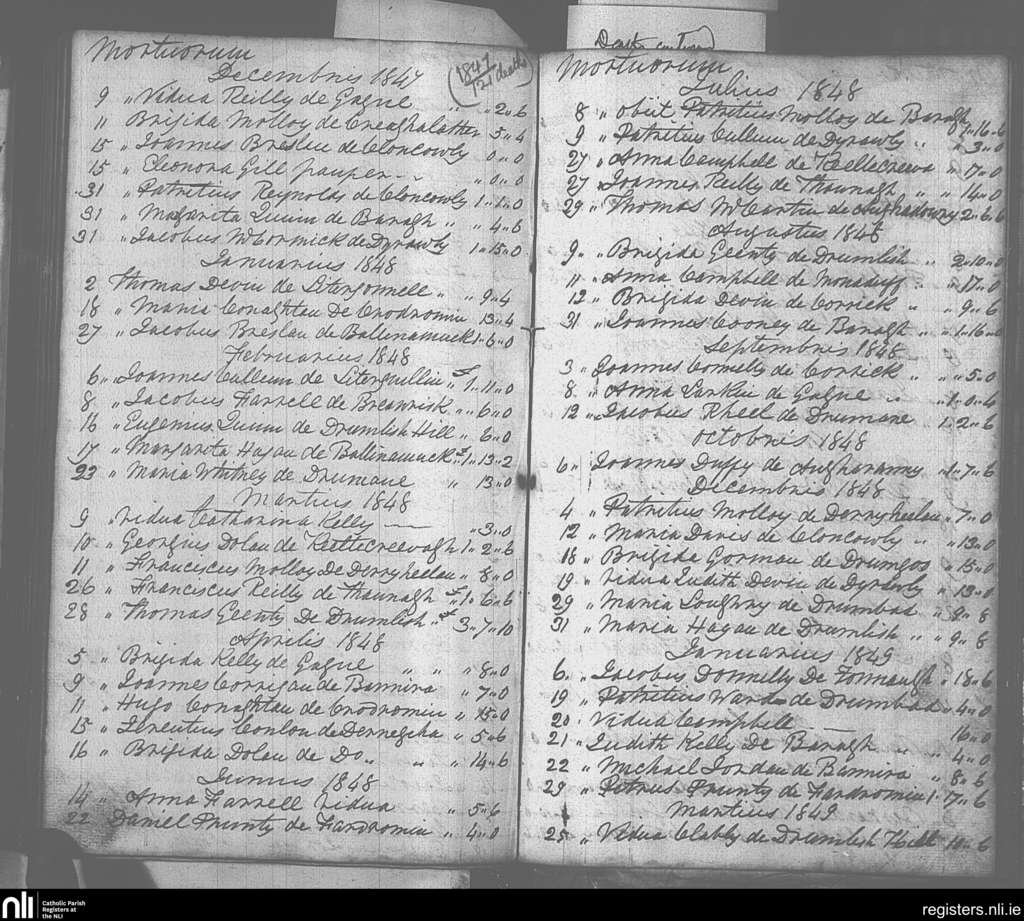 Mortuorum
Decembris 1847
(1847
121 deaths)
9 " Vidua Reilly de Gague " " 2 " 6
11 " Brigida Molloy de Creaghalatter 5 " 4
15 " Joannes Breslin de Cloncowly 0 " 0
15 " Eleonora Gill pauper - - " 0 " 0
31 " Patritius Reynolds de Cloncowly 1 " 1 " 0
31 " Margarita Quinn de Baragh " " 4 " 6
31 " Jacobus McCormick de Dyrawly 1 " 15 " 0
Januarius 1848
2 Thomas Devin de " " 9 " 4
18 " Maria Conaghtan De Crodromin 13 " 4
27 " Jacobus Breslan de Ballinamuck 1 " 6 " 0
Februarius 1848
6 " Joannes Cullum de " £1 " 11 " 0
8 " Jacobus Farrell de Breanrisk " " 6 " 0
16 " Eugenius Quinn de Drumlish Hill " 6 " 0
17 " Margarita Hagan de Ballinamuck " £1 " 13 " 2
23 " Maria Whitney de Drumane " 13 " 0
Martius 1848
9 " Vidua Catharina Kelly — " 3 " 0
10 " Georgius Dolan de 1 " 2 " 6
11 " Franciscus Molloy De Derryheelan " 8 " 0
26 " Franciscus Reilly de Thaunagh " £1 " 6 " 6
28 " Thomas Geenty De Drumlish " £3 " 7 " 10
Aprilis 1848
5 " Brigida Kelly de Gague " " " 8 " 0
9 " Joannes Corrigan de Barnira " 7 " 0
11 " Hugo Conaghtan de Crodromin " 15 " 0
15 " Terentius Conlon de " 5 " 6
16 " Brigida Dolan de Do " " " 14 " 6
Junius 1848
14 " Anna Farrell Vidua " 5 " 6
22 Daniel Prunty de Fardromin " 4 " 0
Mortuorum
Julius 1848
8 " obiit Patritius Molloy de Baragh 1 " 16 " 6
9 " Patritius Cullum de Dyrawly " " 3 " 0
27 " Anna Campbell de " 17 " 0
27 " Joannes Reilly de Thaunagh " " 14 " 0
29 " Thomas McCartin de 2 " 6 " 6
Augustus 1848
9 " Brigida Geenty de Drumlish " 2 " 10 " 0
11 " Anna Campbell de Monaduff " " 17 " 0
12 " Brigida Devin de Corrick " " 9 " 6
31 " Joannes Cooney de Baragh " " 1 " 16 " 0
Septembris 1848
3 " Joannes Connelly de Corrick " " " 5 " 0
8 " Anna Larkin de Gague " " 1 " 0 " 4
12 " Jacobus Rheel de Drumane 1 " 2 " 6
Octobris 1848
6 " Joannes Duffy de 1 " 7 " 6
Decembris 1848
4 " Patritius Molloy de Derryheelan " 7 " 0
12 " Maria Davis de Cloncowly " " 13 " 0
18 " Brigida Gorman de Drumgos " 15 " 0
19 " Vidua Judith Devin de Dyrawly " 13 " 0
29 " Maria Loughry de Drumbad " 9 " 8
31 " Maria Hagan de Drumlish " " 9 " 8
Januarius 1849
6 " Jacobus Donnelly De Formaugh " 18 " 6
19 " Patritius Ward de Drumbad " 4 " 0
20 " Vidua Campbell — 16 " 0
21 " Judith Kelly De Baragh " " 4 " 0
22 " Michael Jordan de Barnira " 8 " 6
29 " Petrus Prunty de Fardromin 1 " 17 " 6
Martius 1849
25 " Vidua Clabby de Drumlish Hill 10 " 6
nli
Catholic Parish
Registers at
the NLI
registers.nli.ie